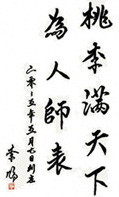 桃李满天下
為人師表
二零一五年五月七日